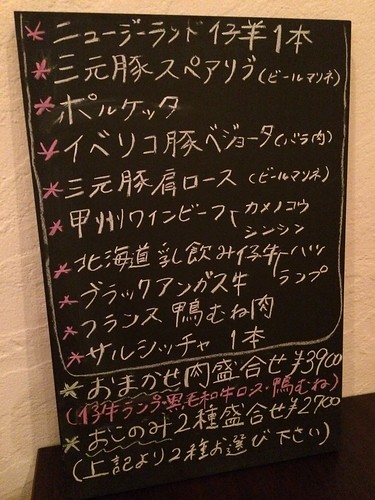 * ニュージーランド仔羊1本
* 三元豚スペアリブ(ビールマリネ)
* ポルケッタ
* イベリコ豚ベジョータ(バラ肉)
* 三元豚肩ロース (ビールマリネ)
* 甲州ワインビーフ カメノコウ
シンシン
* 北海道乳飲み仔牛 ハツ
ランプ
* ブラックアンガス牛
* フランス鴨むね肉
* サルシッチャ 1本
* おまかせ肉盛合せ¥3900
(仔牛ランプ・黒毛和牛ロース・鴨むね)
* おこのみ2種盛合せ¥2700
(上記より2種お選び下さい)